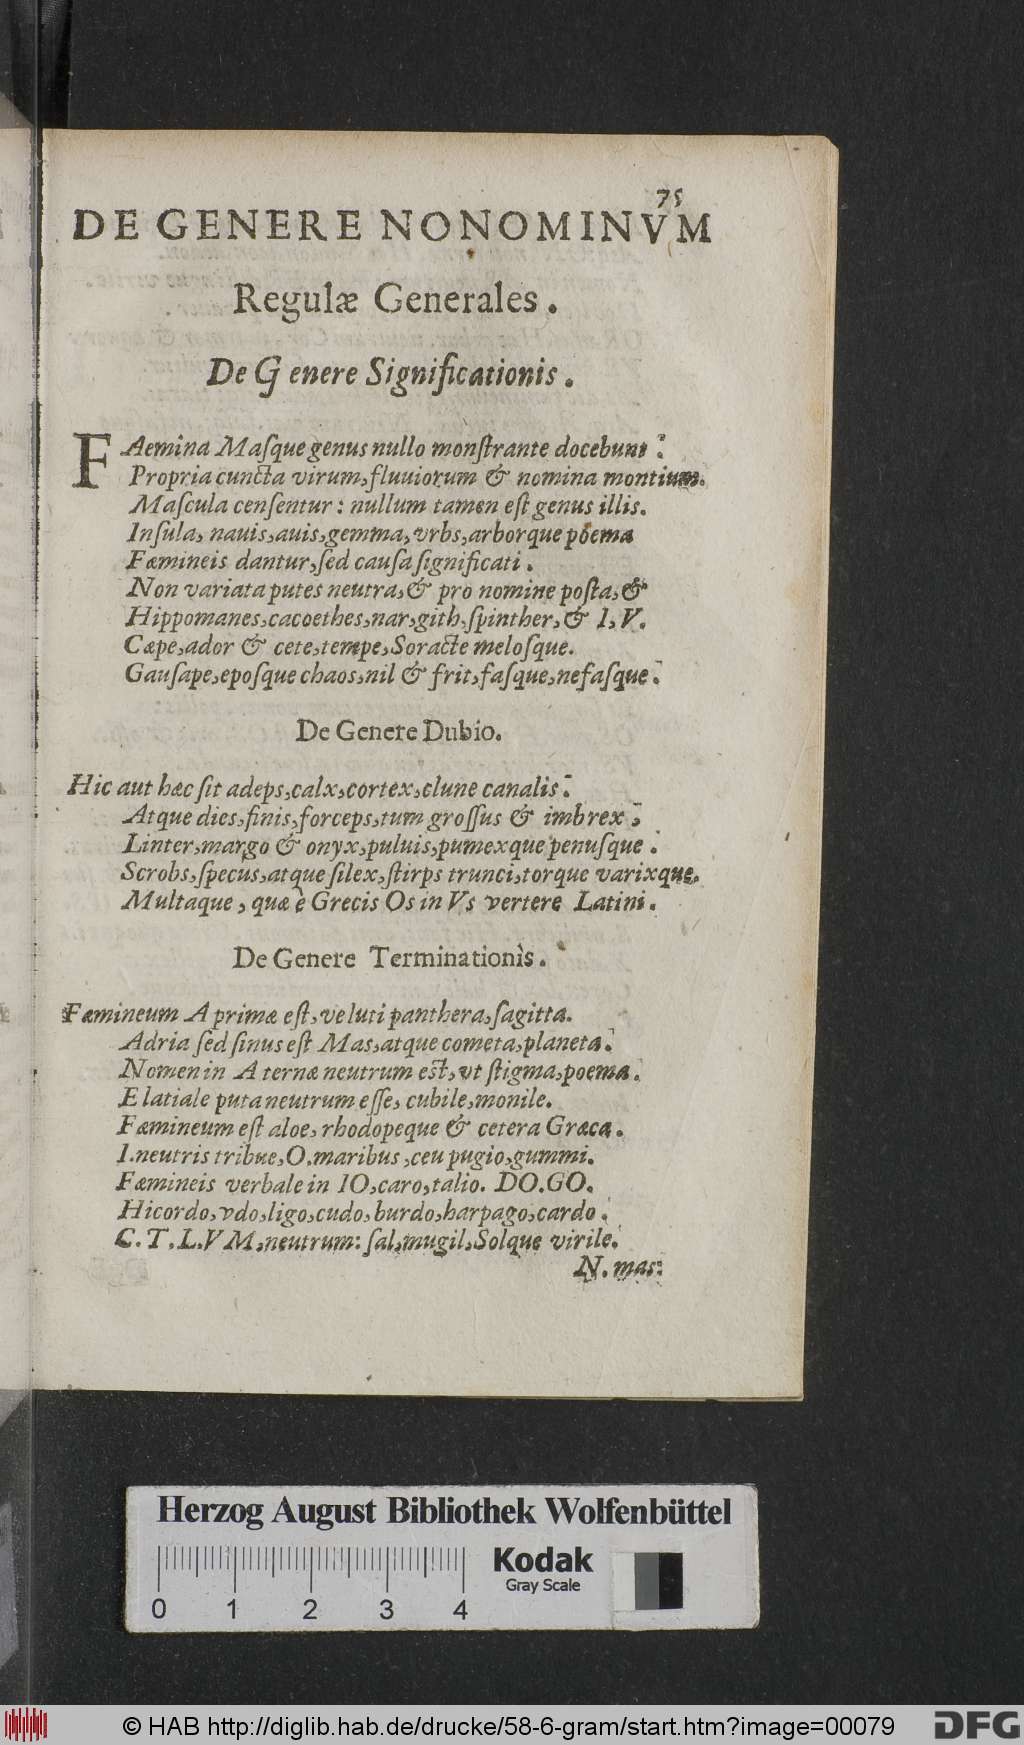 75
DE GENERE NONOMINVM
Regulæ Generales.
De Genere Significationis.
FAemina Maſque genus nullo monſtrante docebunt:
Propria cuncta virum, fluuiorum & nomina montium.
Maſcula cenſentur: nullum tamen eſt genus illis.
Inſula, nauis, auis, gemma, vrbs, arborque poema
Fæmineis dantur, ſed cauſa ſignificati.
Non variata putes neutra, & pro nomine poſta, &
Hippomanes, cacoethes, nar, gith, ſpinther, & I, V.
Cæpe, ador & cete, tempe, Soracte meloſque.
Gauſape, epoſque chaos, nil & frit, faſque, nefaſque.
De Genere Dubio.
Hic aut hæc ſit adeps, calx, cortex, clune canalis.
Atque dies, finis, forceps, tum groſſus & imbrex,
Linter, margo & onyx, puluis, pumexque penuſque.
Scrobs, ſpecus, atque ſilex, ſtirps trunci, torque varixque.
Multaque, quæ è Grecis Os in Vs vertere Latini.
De Genere Terminationis.
Fæmineum A primæ eſt, veluti panthera, ſagitta.
Adria ſed ſinus eſt Mas, atque cometa, planeta.
Nomen in A ternæ neutrum est, vt ſtigma, poema.
E latiale puta neutrum eſſe, cubile, monile.
Fæmineum eſt aloe, rhodopeque & cetera Græca.
I. neutris tribue, O. maribus, ceu pugio, gummi.
Fæmineis verbale in IO, caro, talio. DO. GO.
Hic ordo, vdo, ligo, cudo, burdo, harpago, cardo.
C. T. L. VM, neutrum: ſal, mugil, Solque virile.
N. mas:
Herzog August Bibliothek Wolfenbüttel
Kodak
Gray Scale
0 1 2 3 4
© HAB http://diglib.hab.de/drucke/58-6-gram/start.htm?image=00079
DFG